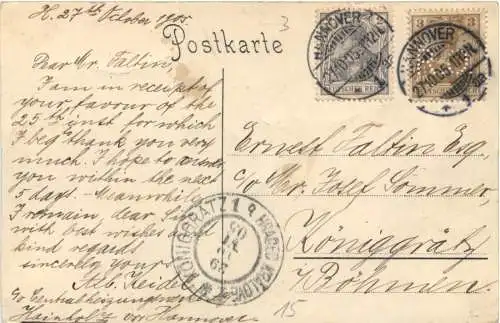 H. 27th October 1905.
3
Postkarte
Dear Mr. Taltin
I am in receipt of
your favour of the
25th inst for which
I beg thank you very
much. I hope to
you within the next
5 days. Meanwhile
I remain, dear Sir,
with best wishes and
kind regards
sincerely yours
c/o Centralheizungswerke
Hainholz vor Hannover
HANNOVER
HANNOVER
3
Ernest Taltin Esq.
c/o Mr. Josef Sommer,
Königgrätz
Böhmen.
KÖNIGGRÄTZ 1
HRADEC KRÁLOVÉ
15